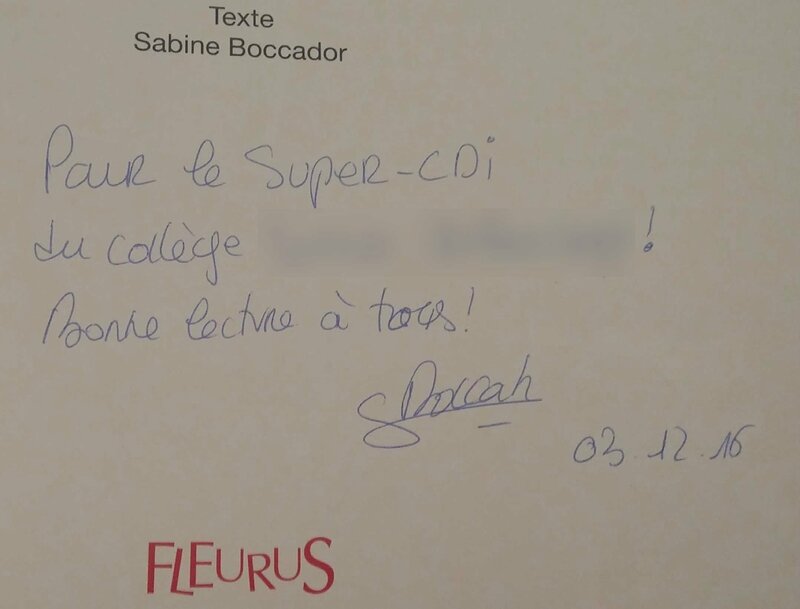 Texte
Sabine Boccador
Pour le Super-CDi
du collège !
Bonne lecture à tous!
03.12.16
FLEURUS